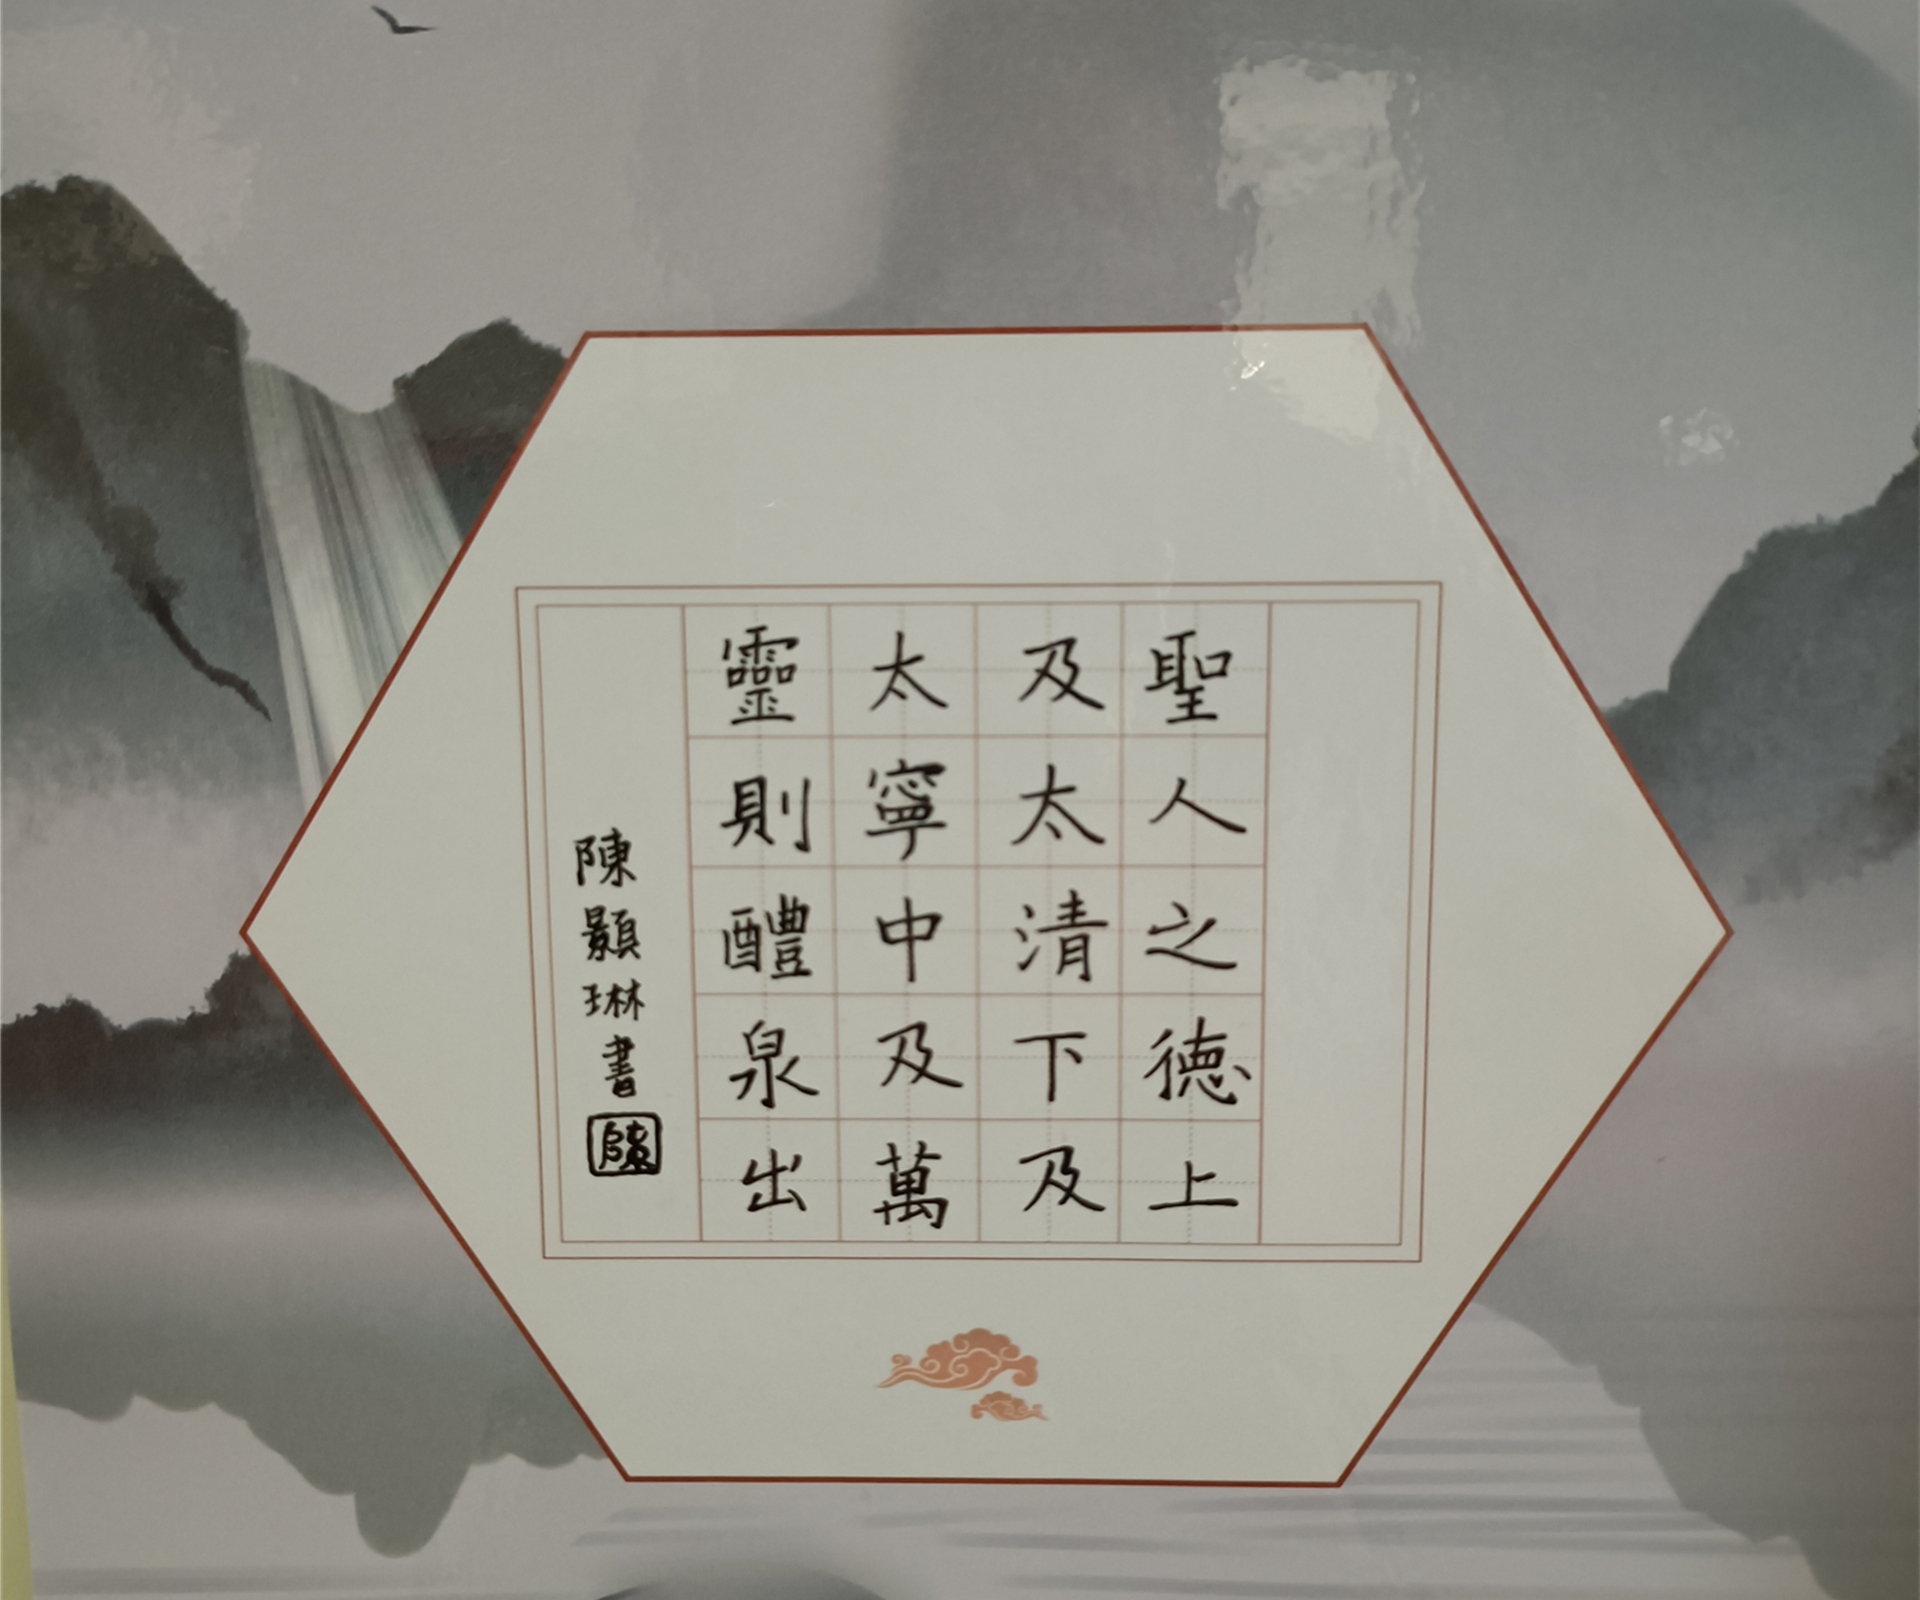 聖人之德上
及太清下及
太寧中及萬
靈則醴泉出
陳顥琳書
陳